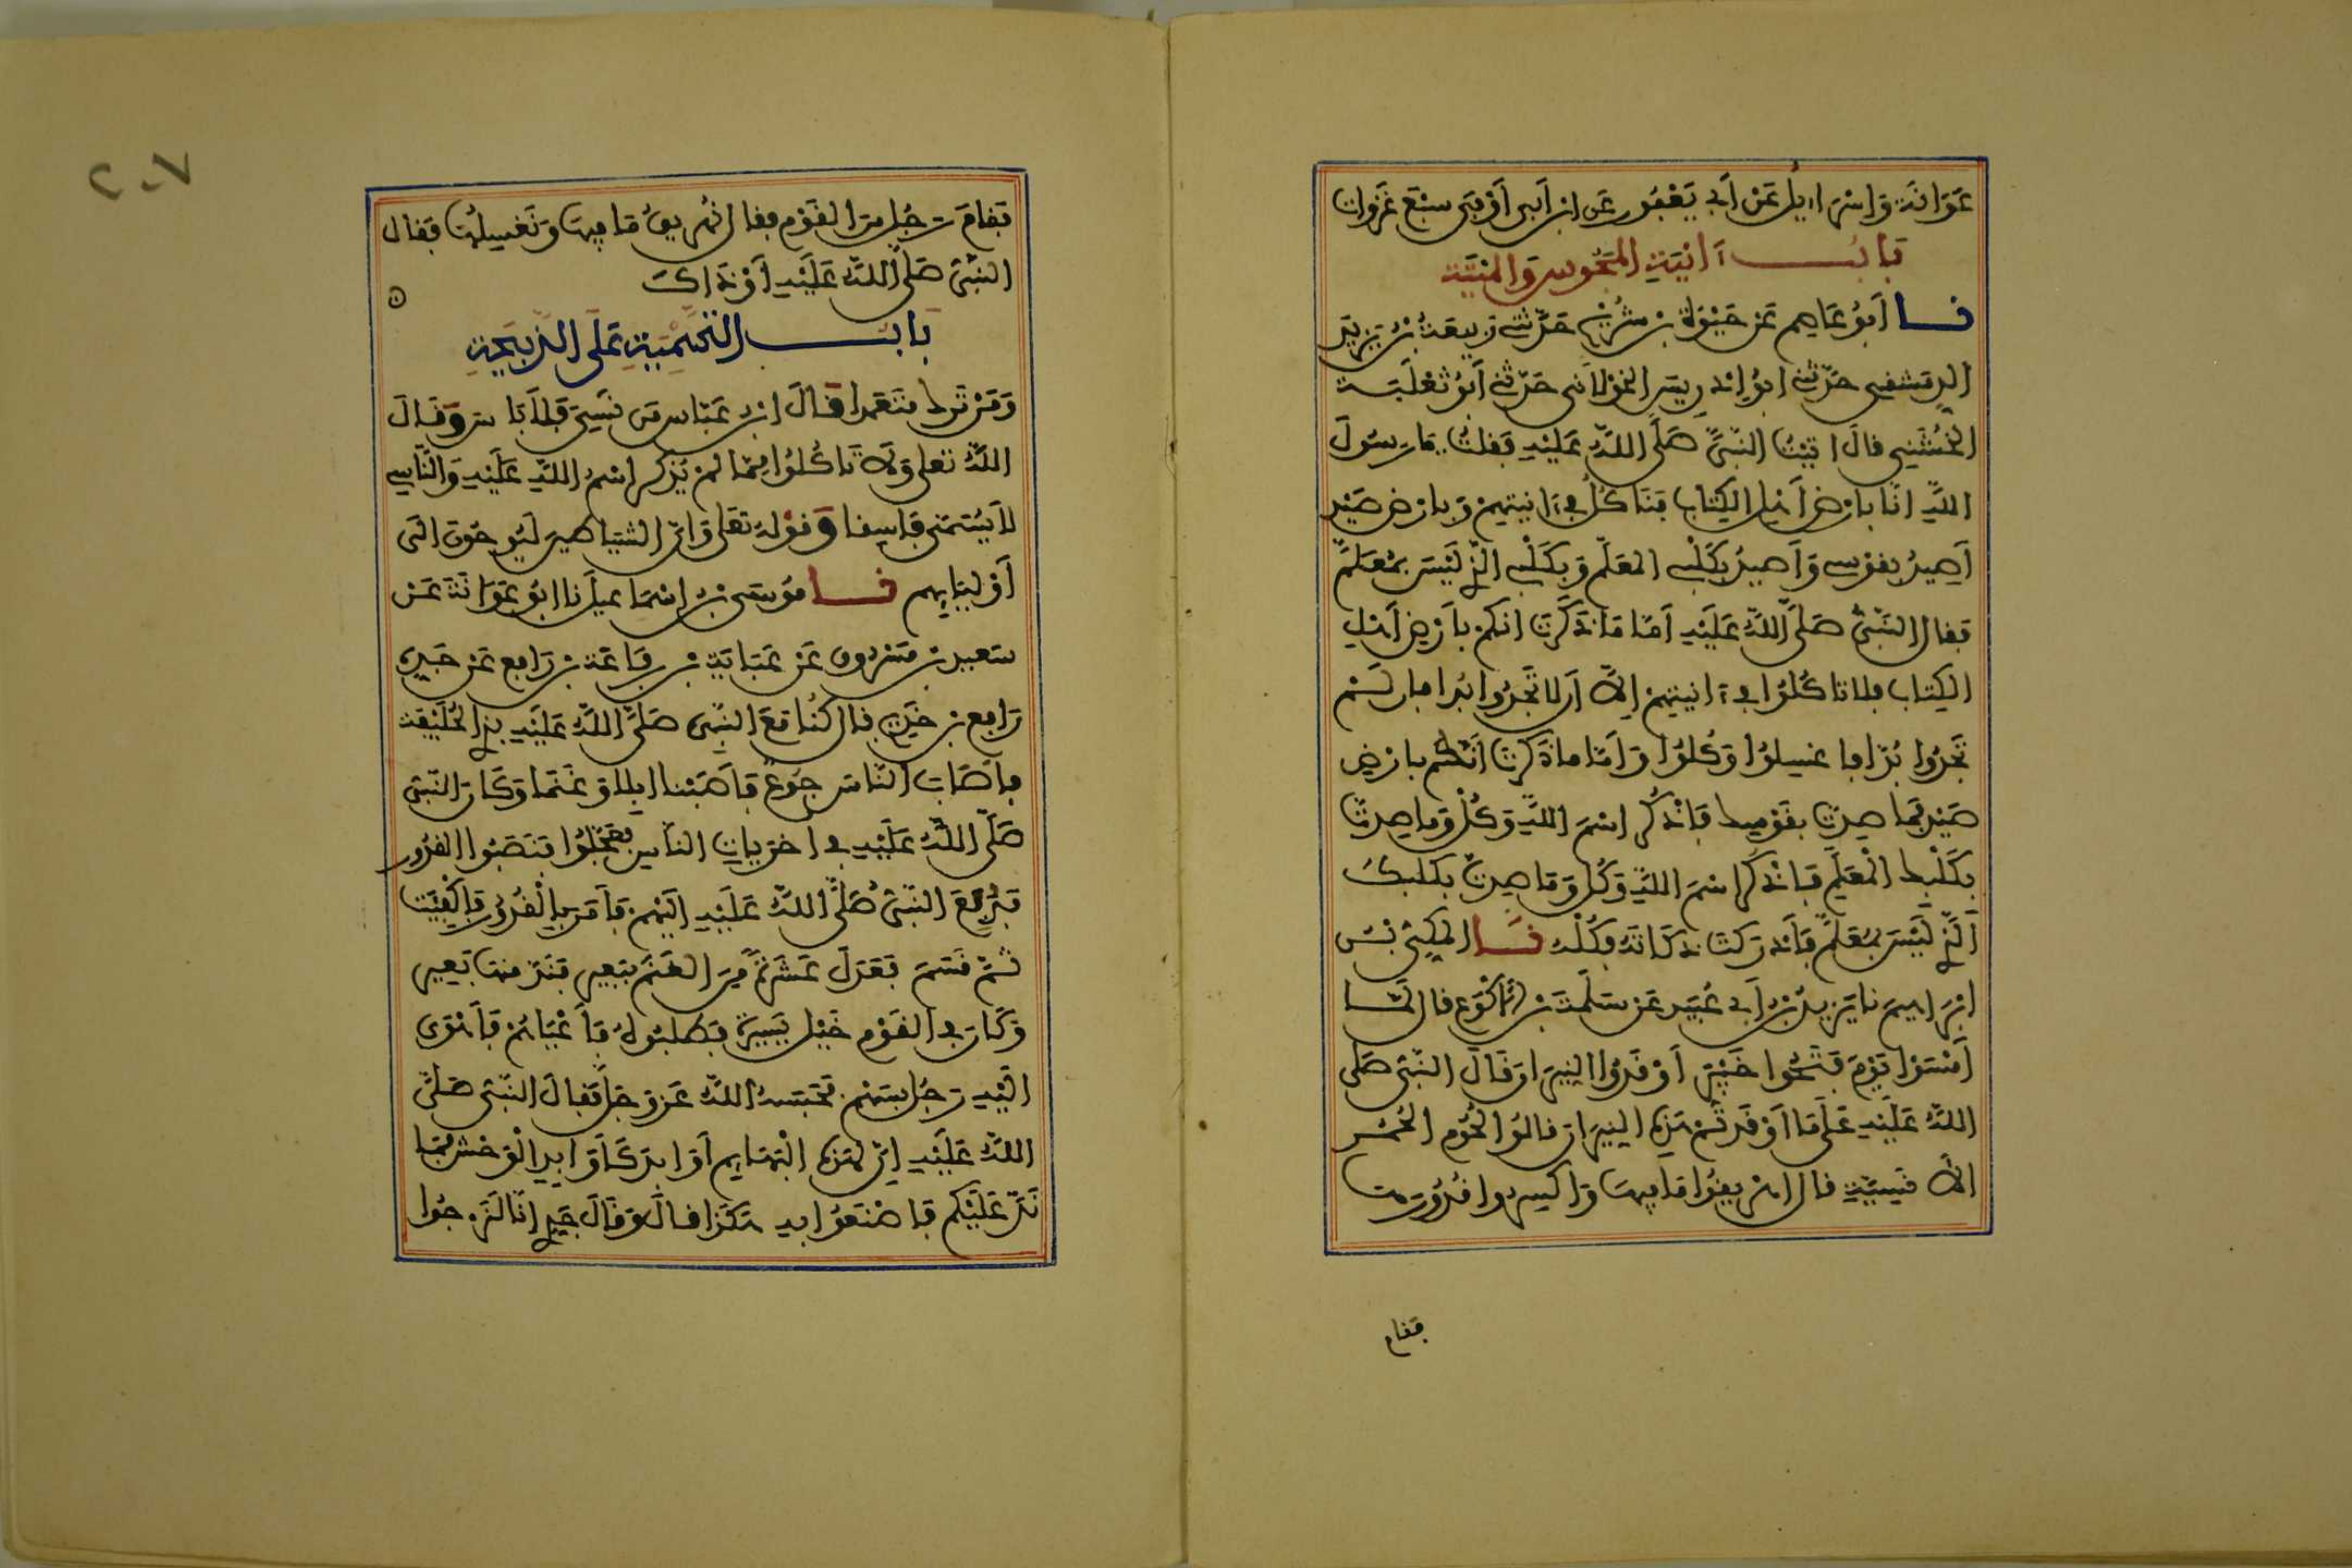 عَوَانَةَ وَإِسْرَاءِيلُ عَنْ أَبِي يَعْفُورٍ عَنِ ابْنِ أَبِي أَوْفَى سَبْعَ غَزَوَاتٍ
بَابُ آنِيَةِ الْمَجُوسِ وَالْمَيْتَةِ
نا أَبُو عَاصِمٍ عَنْ حَيْوَةَ بْنِ شُرَيْحٍ حَدَّثَنِي رَبِيعَةُ بْنُ يَزِيدَ
الدِّمَشْقِي حَدَّثَنِي أَبُو إِدْرِيسَ الْخَوْلَانِي حَدَّثَنِي أَبُو ثَعْلَبَةَ
الْخُشَنِي قَالَ اتَيْتُ النَّبِيَّ صَلَّى اللَّهُ عَلَيْهِ فَقُلْتُ يَا رَسُولَ
اللَّهِ انَّا بِأَرْضِ أَهْلِ الْكِتَابِ فَنَأْكُلُ فِي آنِيَتِهِمْ وَبِأَرْضِ صَيْدٍ
أَصِيدُ بِقَوْسِي وَأَصِيدُ بِكَلْبِي الْمُعَلَّمِ وَبِكَلْبِي الَّذِي لَيْسَ بِمُعَلَّمٍ
فَقَالَ النَّبِيُّ صَلَّى اللَّهُ عَلَيْهِ أَمَّا مَا ذَكَرْتَ انَّكُمْ بِأَرْضِ أَهْلِ
الْكِتَابِ فَلَا تَأْكُلُوا فِي آنِيَتِهِمْ إِلَّا أَن لَا تَجِدُوا بُدًّا فَإِن لَمْ
تَجِدُوا بُدًّا فَاغْسِلُوا وَكُلُوا وَأَمَّا مَا ذَكَرْتَ أَنَّكُمْ بِأَرْضِ
صَيْدٍ فَمَا صِدْتَ بِقَوْسِكَ فَاذْكُرِ اسْمَ اللَّهِ وَكُلْ وَمَا صِدْتَ
بِكَلْبِكَ الْمُعَلَّمِ فَاذْكُرِ اسْمَ اللَّهِ وَكُلْ وَمَا صِدْتَ بِكَلْبِكَ
الَّذِي لَيْسَ بِمُعَلَّمٍ فَأَدْرَكْتَ ذَكَاتَهُ فَكُلْهُ نا الْمَكِّيُّ بْنُ
ابْرَاهِيمَ نا يَزِيدُ بْنُ أَبِي عُبَيْدٍ عَنْ سَلَمَةَ بْنِ الْأَكْوَعِ قَالَ لَمَّا
أَمْسَوْا يَوْمَ فَتَحُوا خَيْبَرَ أَوْقَدُوا النِّيرَانَ قَالَ النَّبِيُّ صَلَّى
اللَّهُ عَلَيْهِ عَلَى مَا أَوْقَدْتُمْ هَذِهِ النِّيرَانَ قَالُوا لُحُومِ الْحُمُرِ
الْإِنْسِيَّةِ قَالَ اهْرِيقُوا مَا فِيهَا وَاكْسِرُوا قُدُورَهَا
فقام
٢٠٧
فَقَامَ رَجُلٌ مِنَ الْقَوْمِ فَقَالَ نُهَرِيقُ مَا فِيهَا وَنَغْسِلُهَا فَقَالَ
النَّبِيُّ صَلَّى اللَّهُ عَلَيْهِ أَوْ ذَاكَ
بَابُ التَّسْمِيَةِ عَلَى الذَّبِيحَةِ
وَمَنْ تَرَكَ مُتَعَمِّدًا قَالَ ابْنُ عَبَّاسٍ مَنْ نَسِيَ فَلَا بَاسَ وَقَالَ
اللَّهُ تَعَلَى وَلَا تَاكُلُوا مِمَّا لَمْ يُذْكَرِ اسْمُ اللَّهِ عَلَيْهِ وَالنَّاسِي
لَا يُسَمَّى فَاسِقًا وَقَوْلُهُ تَعَلَى وَإِنَّ الشَّيَاطِينَ لَيُوحُونَ الَى
أَوْلِيَايِهِمْ نا مُوسَى بْنُ إِسْمَاعِيلَ نَا ابُو عَوَانَةَ عَنْ
سَعِيدِ بْنِ مَسْرُوقٍ عَنْ عَبَايَةَ بْنِ رِفَاعَةَ بْنِ رَافِعٍ عَنْ جَدِّهِ
رَافِعِ بْنِ خَدِيجٍ قَالَ كُنَّا مَعَ النَّبِي صَلَّى اللَّهُ عَلَيْهِ بِذِي الْحُلَيْفَةِ
فَأَصَابَ النَّاسَ جُوعٌ فَأَصَبْنَا ابِلًا وَغَنَمًا وَكَانَ النَّبِيُّ
صَلَّى اللَّهُ عَلَيْهِ فِي اخْرَيَاتِ النَّاسِ فَعَجِلُوا فَنَصَبُوا الْقُدُورَ
فَدُفِعَ النَّبِيُّ صَلَّى اللَّهُ عَلَيْهِ الَيْهِمْ فَأَمَرَ بِالْقُدُورِ فَأُكْفِيَتْ
ثُمَّ قَسَمَ فَعَدَلَ عَشَرَةً مِنَ الْغَنَمِ بِبَعِيرٍ فَنَدَّ مِنْهَا بَعِيرٌ
وَكَانَ فِي الْقَوْمِ خَيْلٌ يَسِيرَةٌ فَطَلَبُوهُ فَأَعْيَاهُمْ فَأَهْوَى
الَيْهِ رَجُلٌ بِسَهْمٍ فَحَبَسَهُ اللَّهُ عَزَّ وَجَلَّ فَقَالَ النَّبِيُّ صَلَّى
اللَّهُ عَلَيْهِ إِنَّ لِهَذِهِ الْبَهَايِمِ أَوَابِدَ كَأَوَابِدِ الْوَحْشِ فَمَا
نَدَّ عَلَيْكُمْ فَاصْنَعُوا بِهِ هَكَذَا قَالَ وَقَالَ جَدِّي إِنَّا لَنَرْجُوا